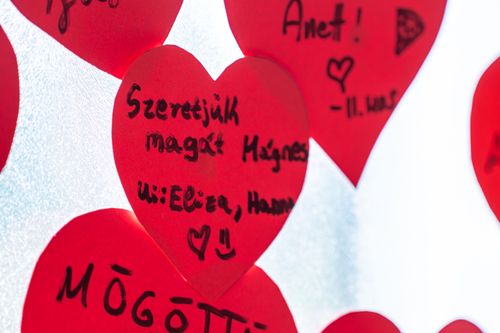 Anet!
-11. has
Szeretjük
magát Mágnes
Ui:: Eliza, Hanna
MÖGÖTT